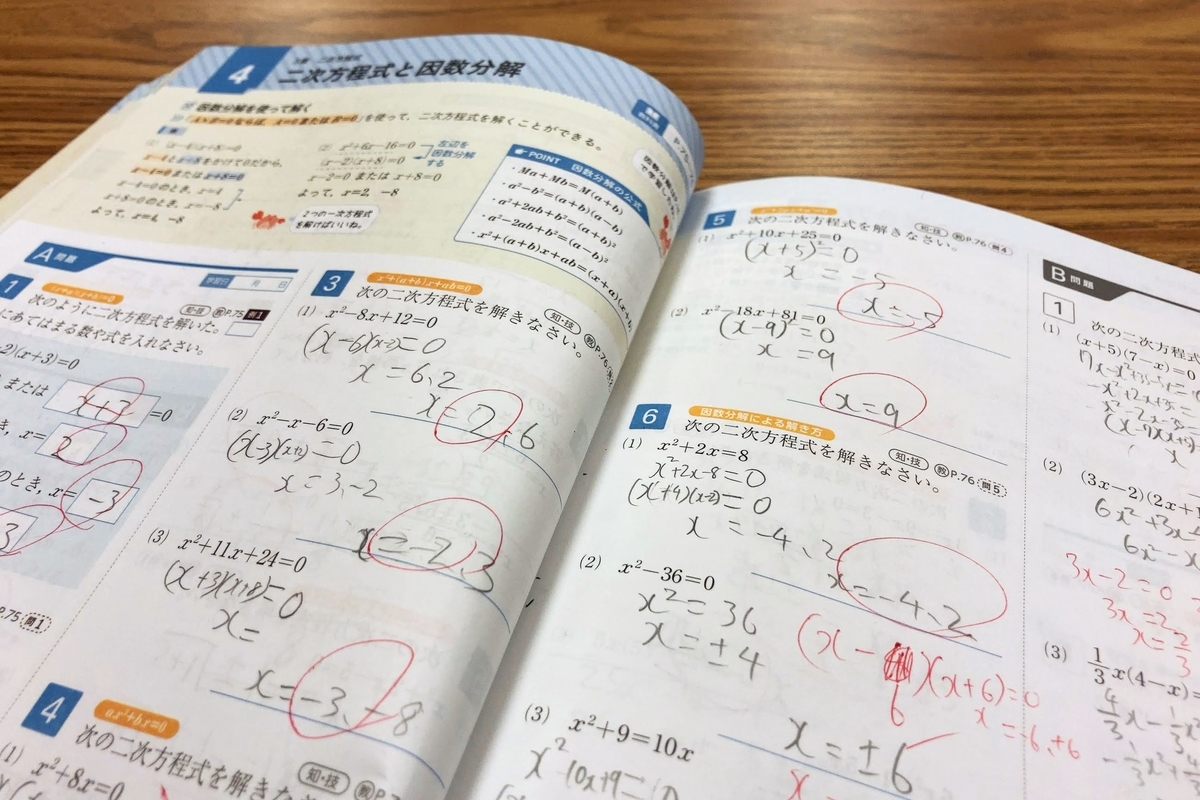 4 二次方程式と因数分解
因数分解を使って解く
A×B=0ならば、A=0またはB=0」を使って、二次方程式を解くことができる。
例
(1) (x−4)(x+8)=0
x−4とx+8をかけて0だから、
x−4=0またはx+8=0
x−4=0のとき、x=4
x+8=0のとき、x=−8
よって、x=4, −8
(2) x²+6x−16=0
(x−2)(x+8)=0
左辺を
因数分解
する
x−2=0 または x+8=0
よって、x=2, −8
2つの一次方程式
を解けばいいね。
POINT 因数分解の公式
・Ma+Mb=M(a+b)
・a²−b²=(a+b)(a−b)
・a²+2ab+b²=(a+b)²
・a²−2ab+b²=(a−b)²
・x²+(a+b)x+ab=(x+a)(x+b)
A 問題
学習日 月 日
1
次のように二次方程式を解いた。
にあてはまる数や式を入れなさい。
知・技 教P.75 例1
2)(x+3)=0
または x+3 =0
き, x= 2
のとき, x= −3
3
P.75 問1
3 x²+(a+b)x+ab=0
次の二次方程式を解きなさい。
知・技 教P.76
(1) x²−8x+12=0
(x−6)(x−2)=0
x=6、2
x=2、6
(2) x²−x−6=0
(x−3)(x+2)=0
x=3、−2
x=−2、3
(3) x²+11x+24=0
(x+3)(x+8)=0
x=
x=−3、−8
4 ax²+bx=0
次の二次方程式を解きなさい。
知・技 教P.7
(1) x²+8x=0
5
次の二次方程式を解きなさい。
知・技 教P.76 例4
(1) x²+10x+25=0
(x+5)²=0
x=−5
x=−5
(2) x²−18x+81=0
(x−9)²=0
x=9
x=9
6 因数分解による解き方
次の二次方程式を解きなさい。
知・技 教P.76 問5
(1) x²+2x=8
x²+2x−8=0
(x+4)(x−2)=0
x=−4、2
x=−4、2
(2) x²−36=0
x²=36
x=±4
(x− 6)(x+6)=0
x=−6、+6
x=±6
(3) x²+9=10x
x²−10x+9=0
B 問題
1 次の二次方程式
(1) (x+5)(7−x)=0
(2) (3x−2)(2x+1
6x²+3x−
6x²−x
3x−2=0
3x=2
x=2/3
(3) 1/3x(4−x)=
4/3x−1/3x²